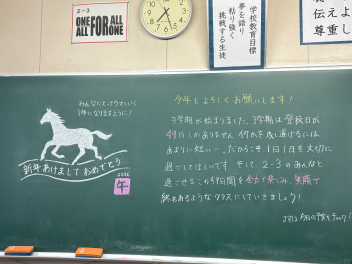 2-3
ONE FOR ALL
ALL FOR ONE
学校教育目標
夢を語り
粘り強く
挑戦する生徒
伝え
尊重し
みんなにとってすてきな
1年になりますように!
新年あけまして おめでとう
2026
午
今年もよろしくお願いします!
3学期が始まりました。3学期は登校日が
49日しかありません。何かを成し遂げるには
あまりに短い…。だからこそ1日1日を大切に
過ごしてほしいです。そして、2-3のみんなと
過ごせるこの49日間を全力で楽しみ、笑顔で
終われるようなクラスにしていきましょう!